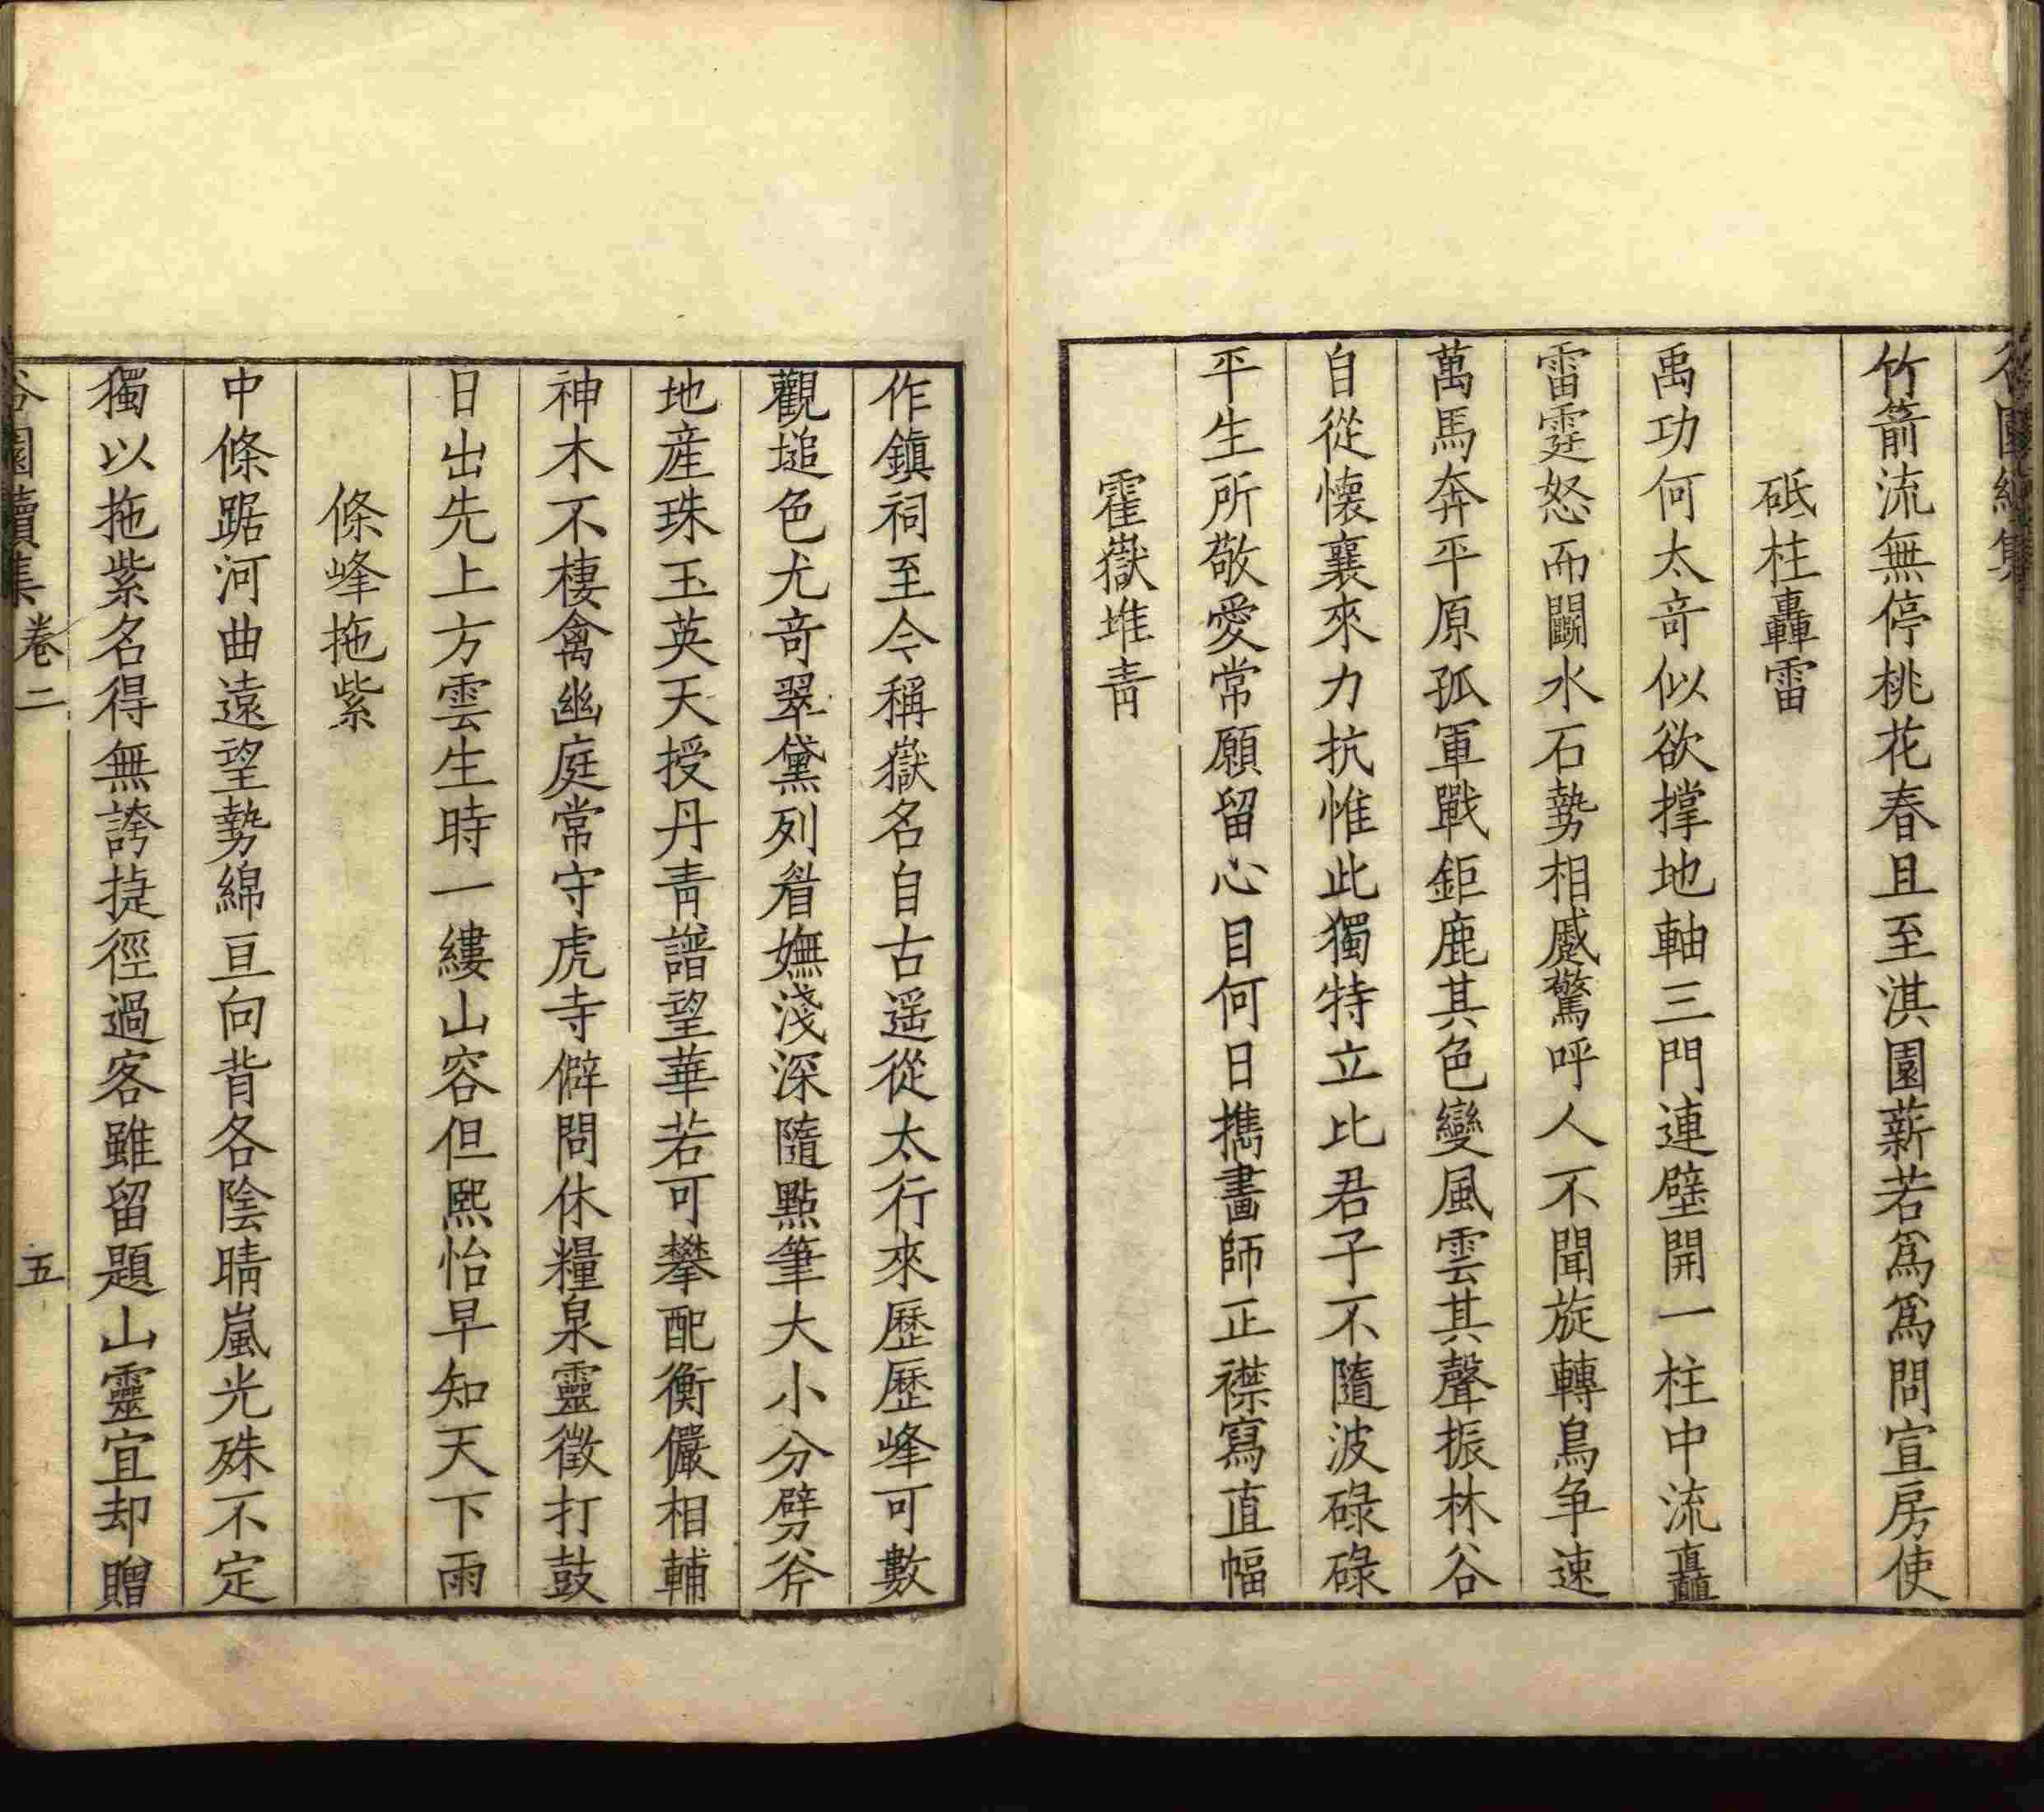 竹箭流無停桃花春且至淇園薪若爲爲問宣房使
砥柱轟雷
禹功何太奇似欲撑地軸三門連壁開一柱中流矗
雷霆怒而鬬水石勢相蹙驚呼人不聞旋轉鳥争速
萬馬奔平原孤軍戰鉅鹿其色變風雲其聲振林谷
自從懷襄來力抗惟此獨特立比君子不隨波碌碌
平生所敬愛常願留心目何日攜畵師正襟寫直幅
霍嶽堆青
作鎮祠至今稱嶽名自古遥從太行來歷歷峰可數
觀搥色尤奇翠黛列眉嫵淺深隨點筆大小分劈斧
地産珠玉英天授丹青譜望華若可攀配衡儼相輔
神木不棲禽幽庭常守虎寺僻問休糧泉靈徵打鼓
日出先上方雲生時一縷山容但熙怡早知天下雨
條峰拖紫
中條踞河曲遠望勢綿亘向背各陰晴嵐光殊不定
獨以拖紫名得無誇捷徑過客雖留題山靈宜却贈
谷園續集 卷二 五